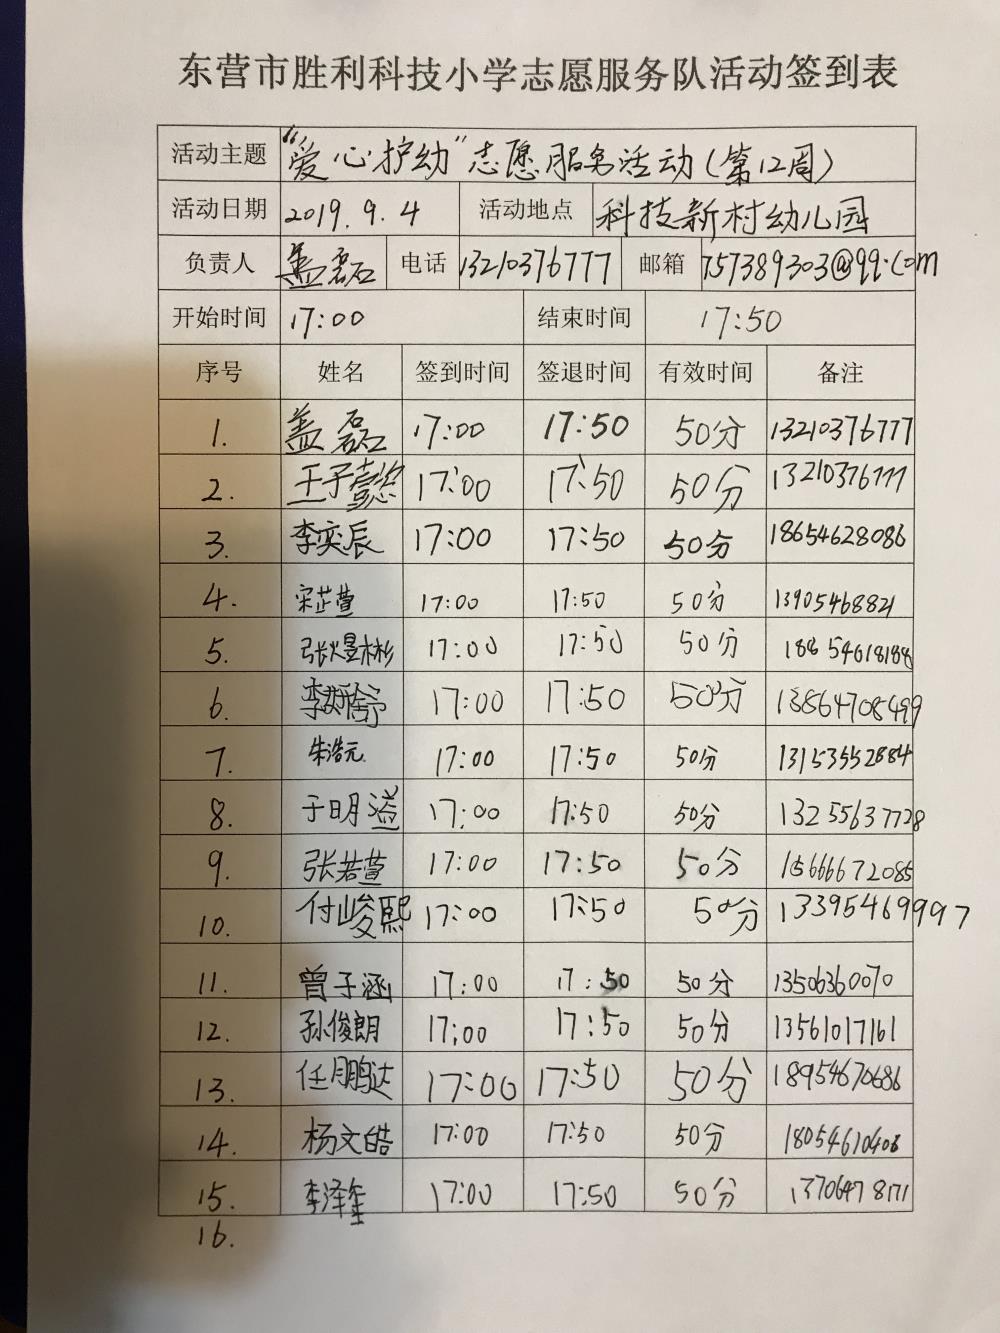 东营市胜利科技小学志愿服务队活动签到表
活动主题 “爱心护幼”志愿服务活动(第12周)
活动日期 2019.9.4 活动地点 科技新村幼儿园
负责人 盖磊 电话 13210376777 邮箱 757389303@qq.com
开始时间 17:00 结束时间 17:50
序号 姓名 签到时间 签退时间 有效时间 备注
1. 盖磊 17:00 17:50 50分 13210376777
2. 王子懿 17:00 17:50 50分 13210376777
3. 李奕辰 17:00 17:50 50分 18654628086
4. 宋芷萱 17:00 17:50 50分 13905468821
5. 张煜彬 17:00 17:50 50分 18854618188
6. 李妍舒 17:00 17:50 50分 13864708499
7. 朱浩元 17:00 17:50 50分 13153552884
8. 于明溢 17:00 17:50 50分 13255637728
9. 张若萱 17:00 17:50 50分 15666672085
10. 付峻熙 17:00 17:50 50分 13395469997
11. 曾子涵 17:00 17:50 50分 13506360070
12. 孙俊朗 17:00 17:50 50分 13561017161
13. 任鹏达 17:00 17:50 50分 18954670686
14. 杨文皓 17:00 17:50 50分 18054610408
15. 李泽 17:00 17:50 50分 13706478171
16.